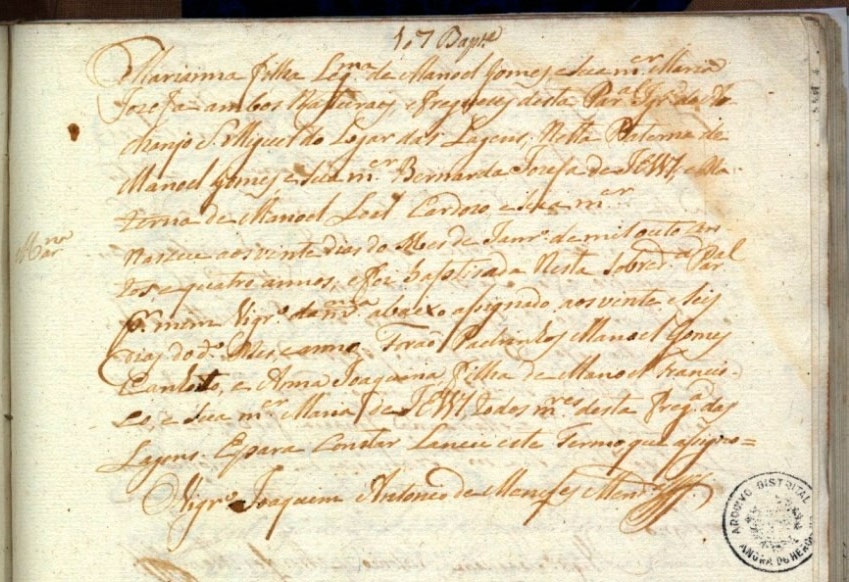 107 Bapt.e
Marianna filha Leg.ma de Manoel Gomes e sua m.er Maria
Jozefa ambos Naturaes, e freguezes desta Par.a Igr.a do Ar-
chanjo S. Miguel do Lugar das Lagens; Netta Paterna de
Manoel Gomes e sua m.er Bernarda Josefa de JESUS, e Ma-
terna de Manoel Cardozo, e sua m.er
Nasceu aos vinte dias do Mes de Janr.o de mil outo cen-
tos e quatro annos, e foi baptisada Nesta Sobred.a Par.al
p. mim Vigr.o da m.ma abaixo asignado aos vinte e seis
dias do d.o Mes, e anno forão Padrinhos Manoel Gomes
e Anna Joaquina, filha de Manoel Francis-
co, e sua m.er Maria de JESUS, todos m.res desta freg.a das
Lagens. E para Constar Lancei este Termo que asigno =
O Vigr.o Joaquim Antonio de Menezes
ARQUIVO DISTRITAL
ANGRA DO HEROÍSMO